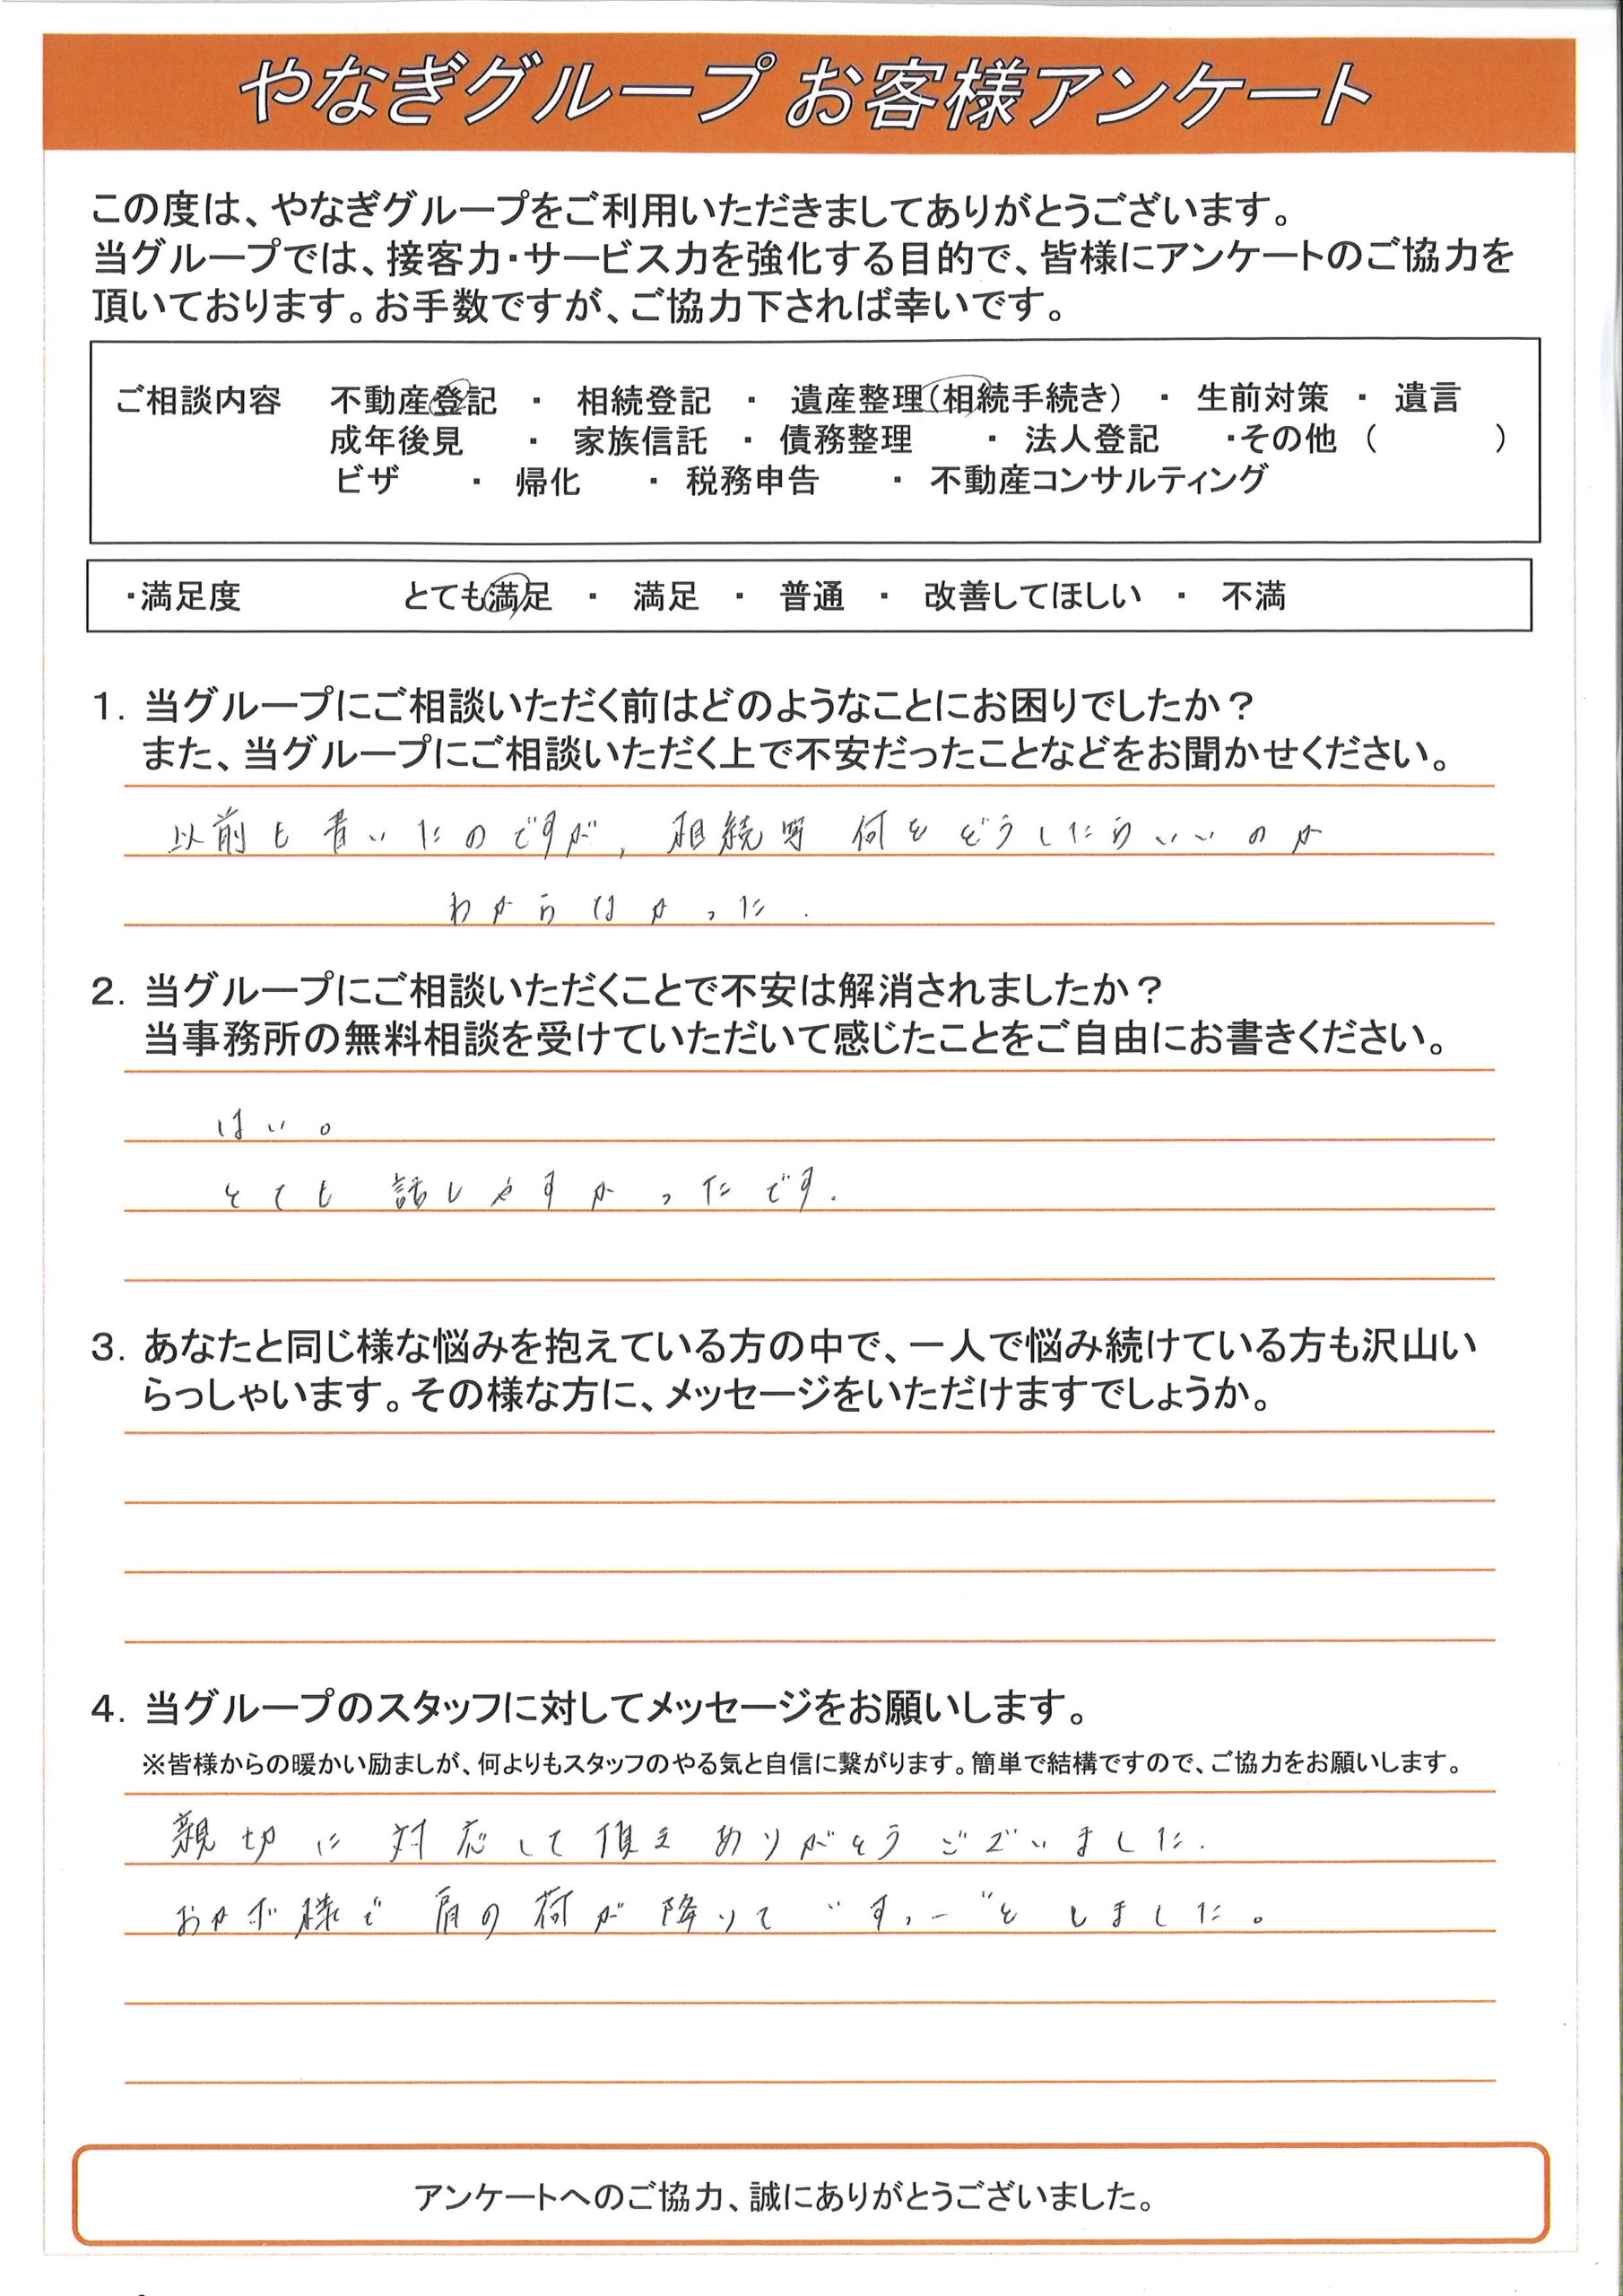 やなぎグループ お客様アンケート
この度は、やなぎグループをご利用いただきましてありがとうございます。
当グループでは、接客力・サービス力を強化する目的で、皆様にアンケートのご協力を
頂いております。お手数ですが、ご協力下されば幸いです。
ご相談内容 不動産登記 ・ 相続登記 ・ 遺産整理(相続手続き) ・ 生前対策 ・ 遺言
成年後見 ・ 家族信託 ・ 債務整理 ・ 法人登記 ・その他 ( )
ビザ ・ 帰化 ・ 税務申告 ・ 不動産コンサルティング
・満足度 とても満足 ・ 満足 ・ 普通 ・ 改善してほしい ・ 不満
1. 当グループにご相談いただく前はどのようなことにお困りでしたか?
また、当グループにご相談いただく上で不安だったことなどをお聞かせください。
以前も書いたのですが, 相続等 何をどうしたらいいのか
わからなかった.
2. 当グループにご相談いただくことで不安は解消されましたか?
当事務所の無料相談を受けていただいて感じたことをご自由にお書きください。
はい。
とても 話しやすかったです.
3. あなたと同じ様な悩みを抱えている方の中で、一人で悩み続けている方も沢山い
らっしゃいます。その様な方に、メッセージをいただけますでしょうか。
4. 当グループのスタッフに対してメッセージをお願いします。
※皆様からの暖かい励ましが、何よりもスタッフのやる気と自信に繋がります。簡単で結構ですので、ご協力をお願いします。
親切に 対応して頂き ありがとうございました.
おかげ様で 肩の荷が 降りて "すっー"と しました。
アンケートへのご協力、誠にありがとうございました。